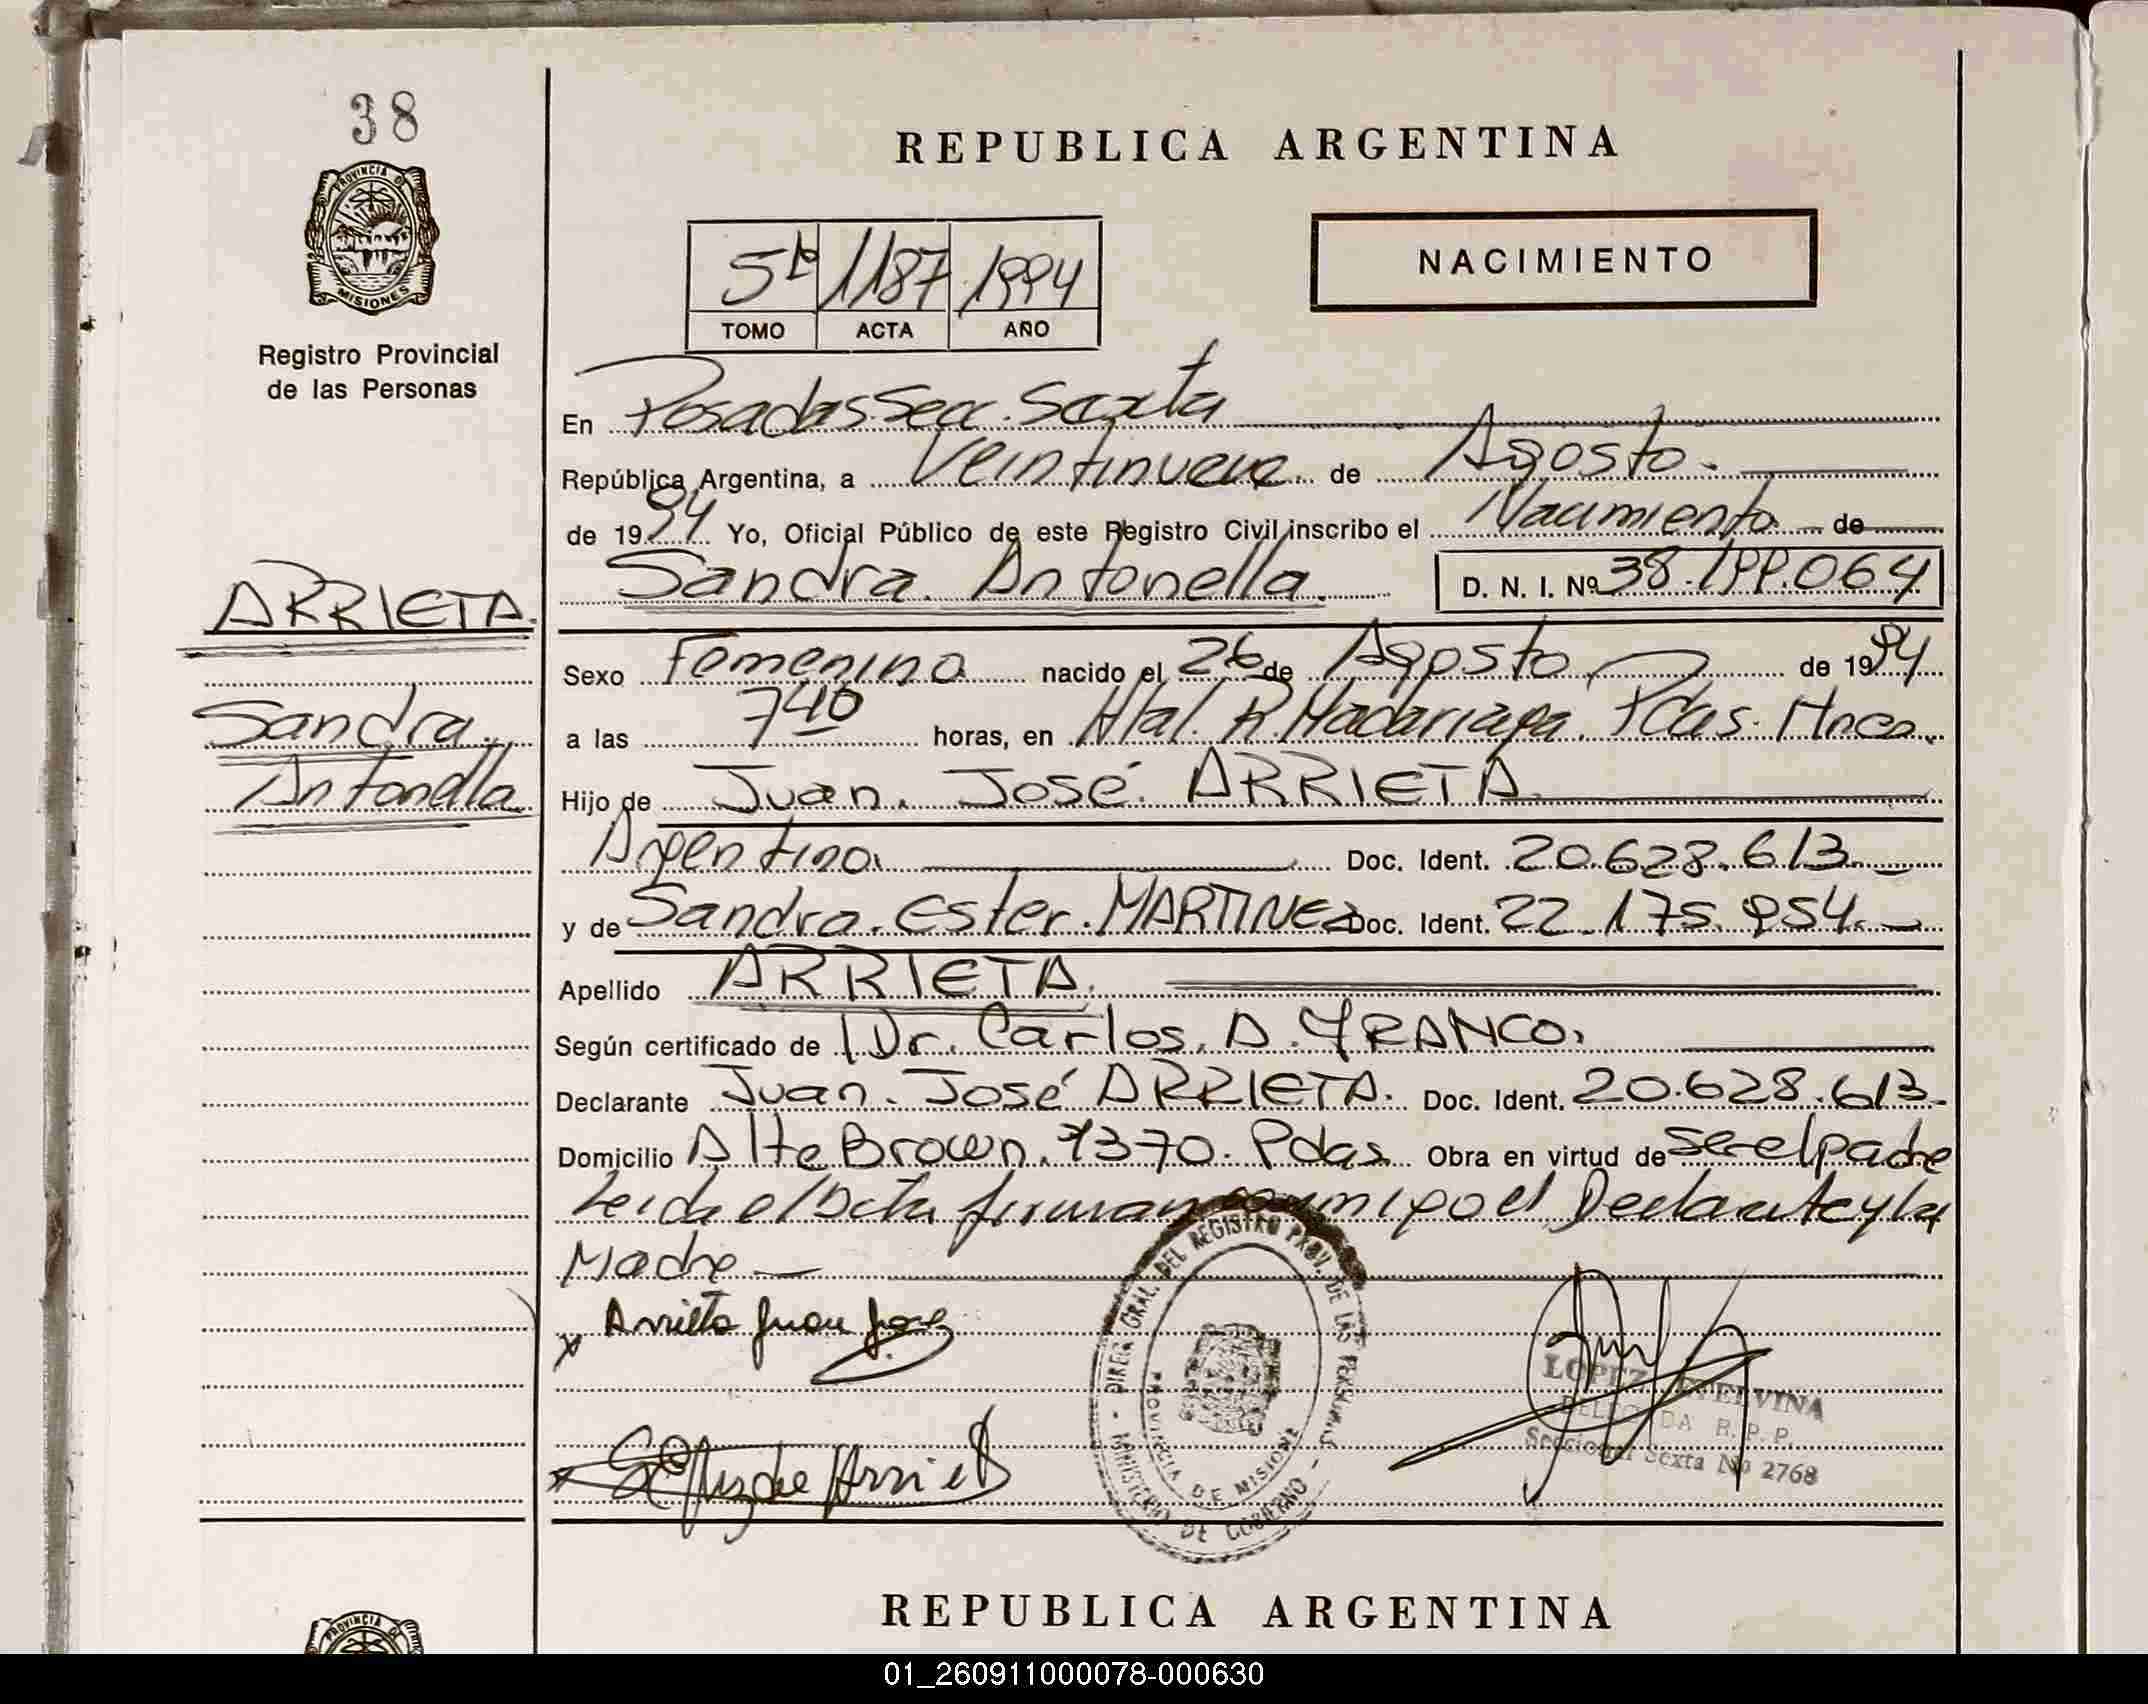 38
REPUBLICA ARGENTINA
PROVINCIA DE
MISIONES
NACIMIENTO
5to 1187 1994
TOMO ACTA AÑO
Registro Provincial
de las Personas
En Posadas Secc. Sexta
República Argentina, a Veintinueve de Agosto.
de 1994 Yo, Oficial Público de este Registro Civil inscribo el Nacimiento de
ARRIETA.
Sandra Antonella. D. N. I. Nº 38.199.064
Sexo Femenino nacido el 26 de Agosto de 1994
Sandra
a las 740 horas, en Htal. R. Madariaga. Pdas. Mnes.
Antonella
Hijo de Juan José ARRIETA
Argentino. Doc. Ident. 20.628.613
y de Sandra Ester MARTINEZ Doc. Ident. 22.175.954.
Apellido ARRIETA.
Según certificado de Dr. Carlos A. FRANCO.
Declarante Juan José ARRIETA. Doc. Ident. 20.628.613
Domicilio Alte Brown 1370. Pdas. Obra en virtud de ser el padre
Leida el Acta firman conmigo el Declarante y la
Madre
x Arrieta Juan José
DIREC. GRAL. DEL REGISTRO PROV. DE LAS PERSONAS
PROVINCIA DE MISIONES
MINISTERIO DE GOBIERNO
LOPEZ ETELVINA
DELEGADA R. P. P.
Seccional Sexta Nº 2768
REPUBLICA ARGENTINA
PROVINCIA
01_260911000078-000630